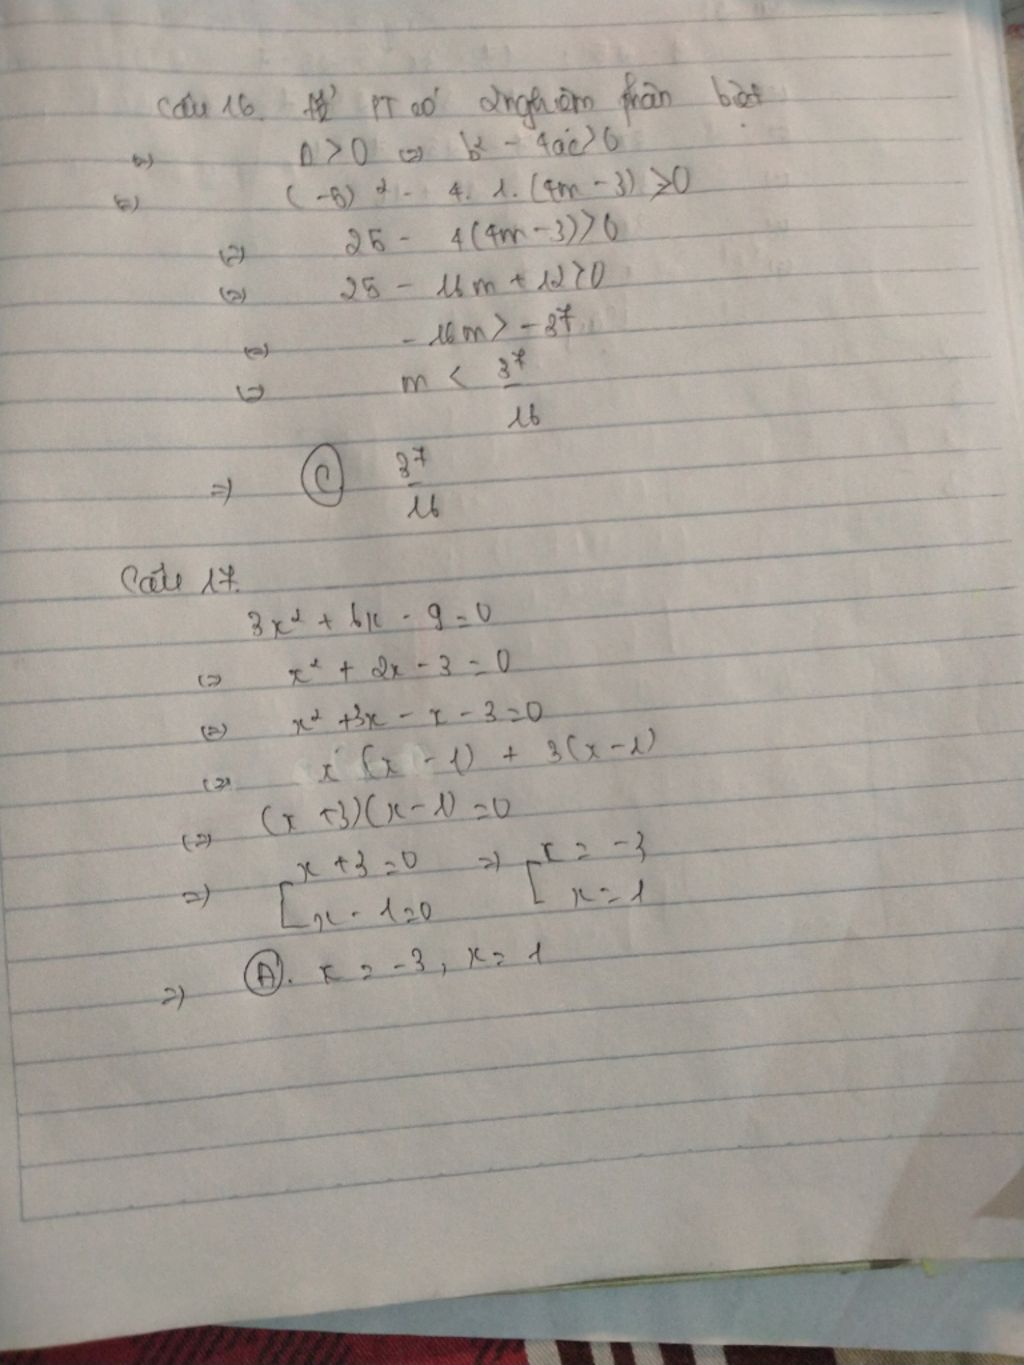 Câu 16. Để PT có 2 nghiệm phân biệt
<=> Δ > 0 <=> b² - 4ac > 0
<=> (-5)² - 4. 1. (4m - 3) > 0
<=> 25 - 4(4m - 3) > 0
<=> 25 - 16m + 12 > 0
<=> - 16m > - 37
<=> m < 37/16
=> C 37/16
Câu 17.
3x² + 6x - 9 = 0
<=> x² + 2x - 3 = 0
<=> x² + 3x - x - 3 = 0
<=> x (x - 1) + 3(x - 1)
<=> (x + 3)(x - 1) = 0
=> [ x + 3 = 0 => [ x = -3
x - 1 = 0 x = 1
=> A. x = -3, x = 1